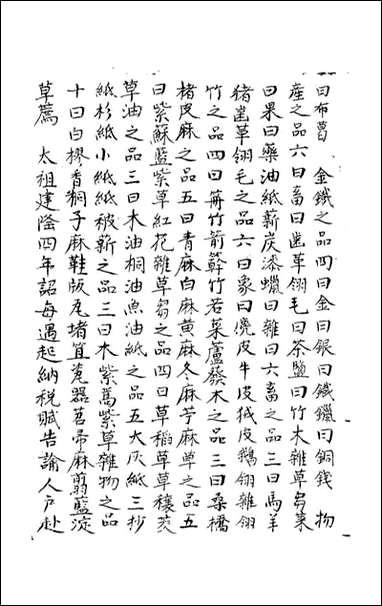 曰布葛　金鐵之品四曰金曰銀曰鐵鑞曰銅錢　物
産之品六曰畜曰齒革翎毛曰茶鹽曰竹木雜草芻菜
曰果曰藥油紙薪炭漆蠟曰雜曰六畜之品三曰馬羊
猪齒革翎毛之品六曰象曰麂皮牛皮狨皮鵝翎雜翎
竹之品四曰箭竹箭簳竹若菜蘆䕠木之品三曰桑橘
楮皮麻之品五曰青麻白麻黃麻冬麻苧麻草之品五
曰紫蘇藍紫草紅花雜草芻之品四曰草稻草草穰茭
草油之品三曰木油桐油魚油紙之品五大灰紙三抄
紙杉紙小紙紙被薪之品三曰木紫蒿紫草雜物之品
十曰白樛香桐子麻鞋版瓦堵笪甆器苕帚麻翦藍淀
草薦　太祖建隆四年詔每遇起納稅賦告諭人户赴